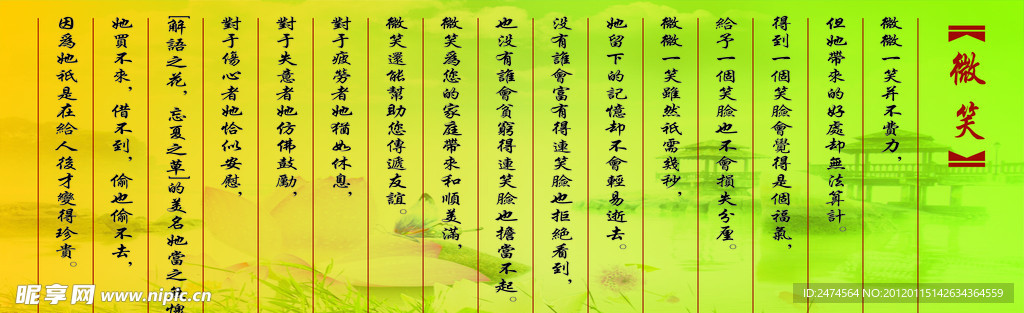 【微笑】
微微一笑并不費力，
但她帶來的好處却無法算計。
得到一個笑臉會覺得是個福氣，
給予一個笑臉也不會損失分厘。
微微一笑雖然祇需幾秒，
她留下的記憶却不會輕易逝去。
没有誰會富有得連笑臉也拒絕看到，
也没有誰會貧窮得連笑臉也擔當不起。
微笑為您的家庭帶來和順美滿，
微笑還能幫助您傳遞友誼。
對于疲勞者她猶如休息，
對于失意者她仿佛鼓勵，
對于傷心者她恰似安慰，
[解語之花，忘憂之草]的美名她當之無愧
她買不來，借不到，偷也偷不去，
因為她祇是在給人後才變得珍貴。
昵享网 www.nipic.cn
ID:2474564 NO:20120115142634364559